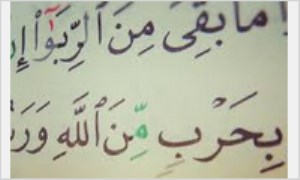 مَا بَقِىَ مِنَ ٱلرِّبَوٰٓا۟
بِحَرْبٍ مِّنَ ٱللَّهِ